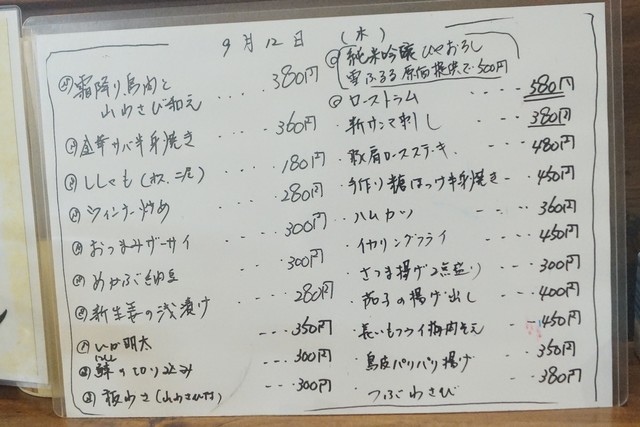 9月12日 (水)
霜降り鳥肉と
山わさび和え ････ 380円
金華サバ半身焼き ････ 360円
ししゃも(オス、二尾) ････ 180円
ウィンナー炒め ････ 280円
おつまみザーサイ ････ 300円
めかぶ納豆 ････ 300円
新生姜の浅漬け ････ 280円
いか明太 --- 350円
鰊の切り込み --- 300円
にしん
板わさ(山わさび付) --- 300円
純米吟醸 ひやおろし
雪ふるる 原価提供で500円
ローストラム ････ 380円
新サンマ刺し ････ 380円
豚肩ロースステーキ ････ 480円
手作り糠ほっけ半身焼き --- 450円
ハムカツ ････ 360円
イカリングフライ --- 450円
さつま揚げ2点盛り --- 300円
茄子の揚げ出し --- 400円
長いもフライ梅肉そえ --- 450円
鳥皮パリパリ揚げ --- 350円
つぶわさび --- 380円